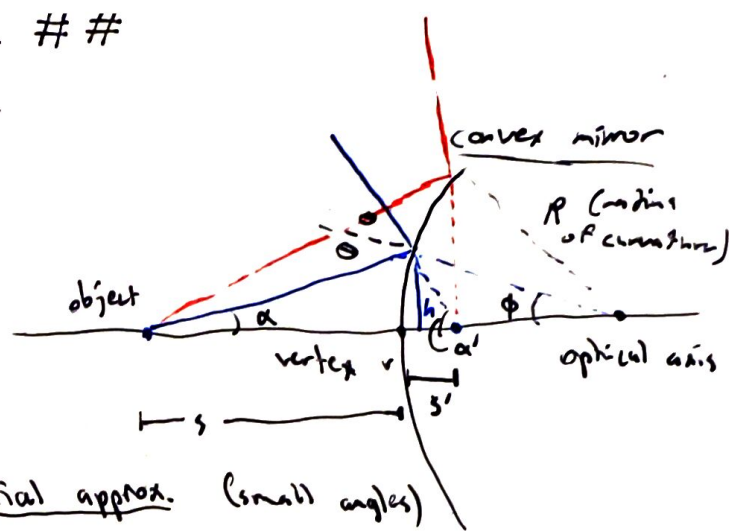 ##
convex mirror
R (radius
of curvature)
θ
θ
object
h
ϕ
α
α'
vertex v
optical axis
s'
s
ial approx. (small angles)